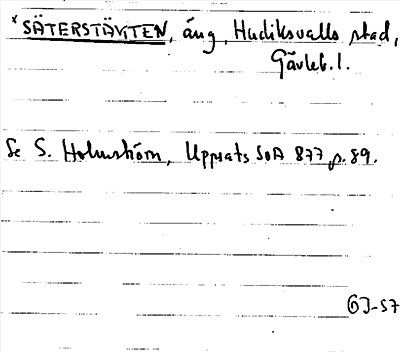 *SÄTERSTÄVITEN, äng, Hudiksvalls stad,
Gävleb. l.
Se S. Holmström, Uppsats SOA 877, p. 89.
GJ-57